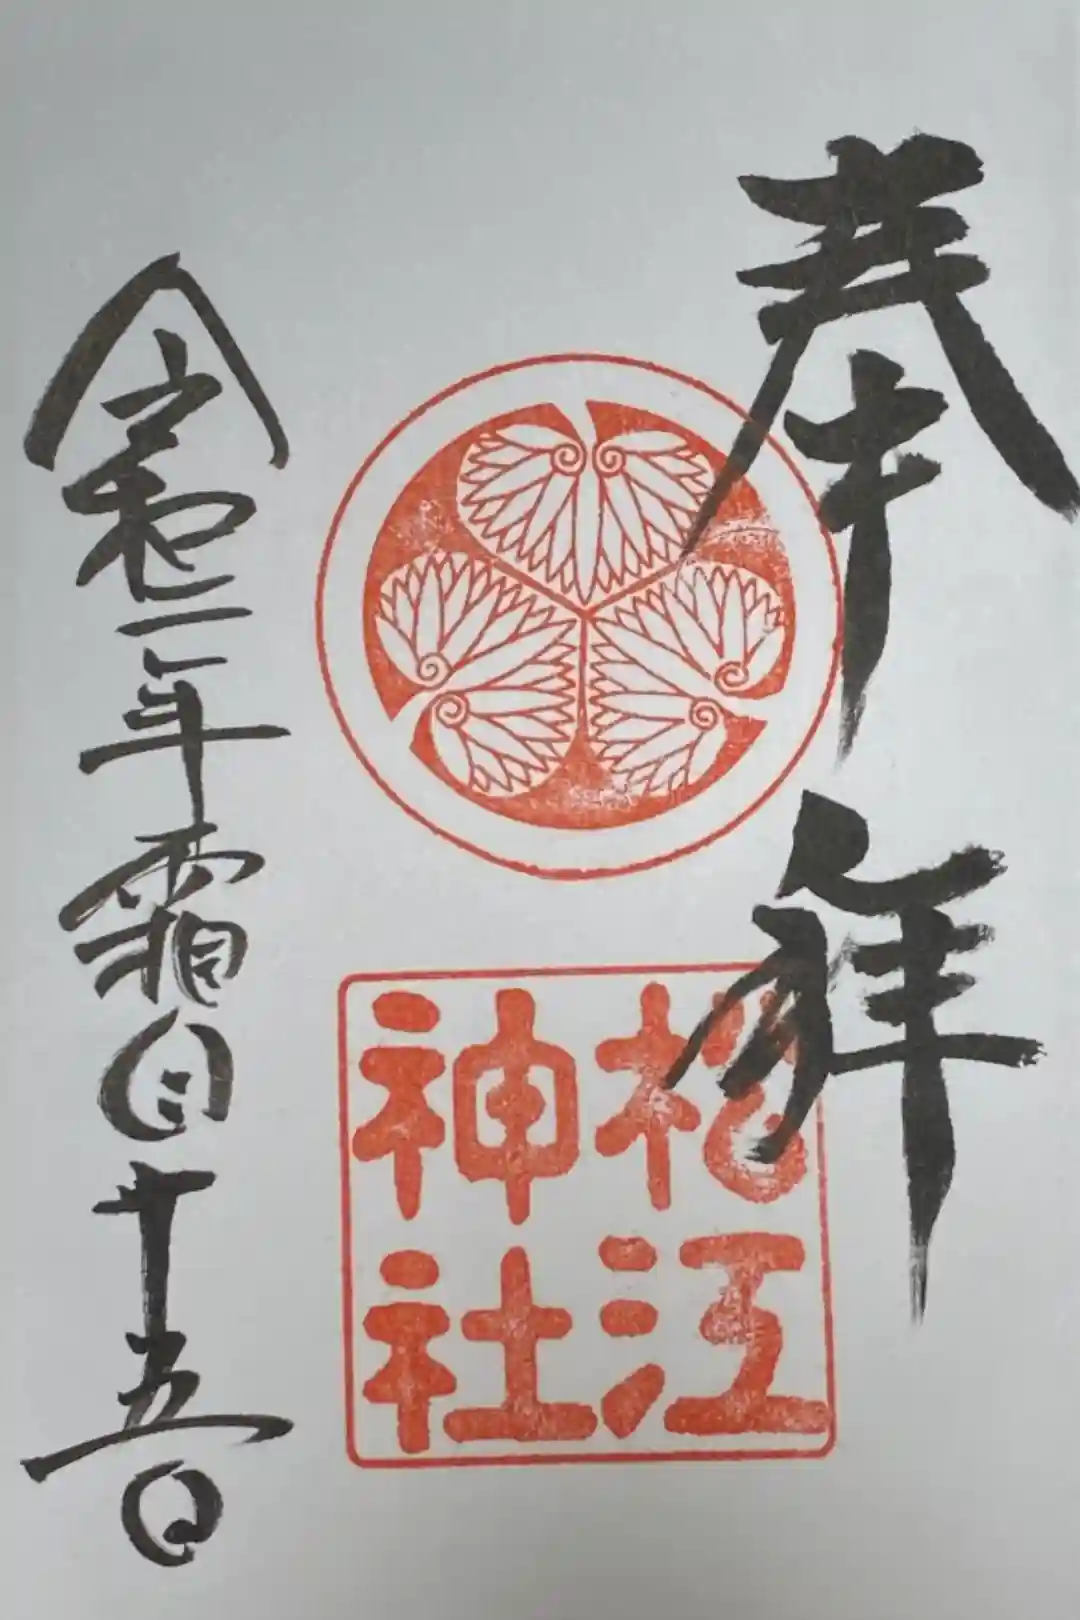 奉拝
松江
神社
令和二年霜月十五日